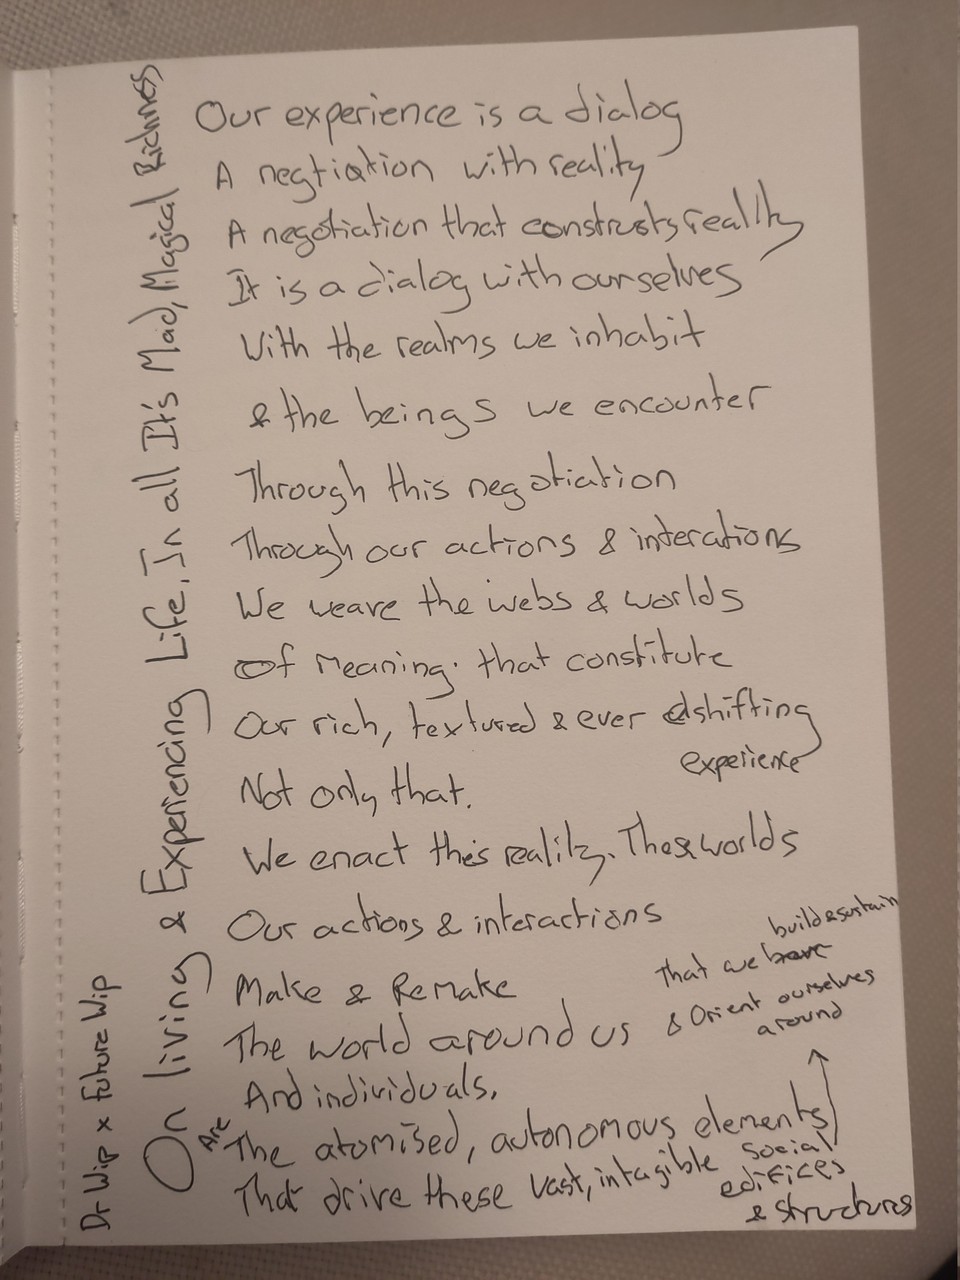 On living & Experiencing Life. In all It's Mad, Magical Richness
Dr Wip x Future Wip
Our experience is a dialog
A negtiation with reality
A negotiation that constructs reality
It is a dialog with ourselves
With the realms we inhabit
& the beings we encounter
Through this negotiation
Through our actions & interations
We weave the webs & worlds
Of meaning. that constitute
Our rich, textured & ever shifting
experience
Not only that.
We enact this reality. These worlds
Our actions & interactions
Make & Remake
The world around us
And individuals.
Are
The atomised, autonomous elements
That drive these vast, intagible social
edifices
& structures
that we build & sustain
& Orient ourselves
around